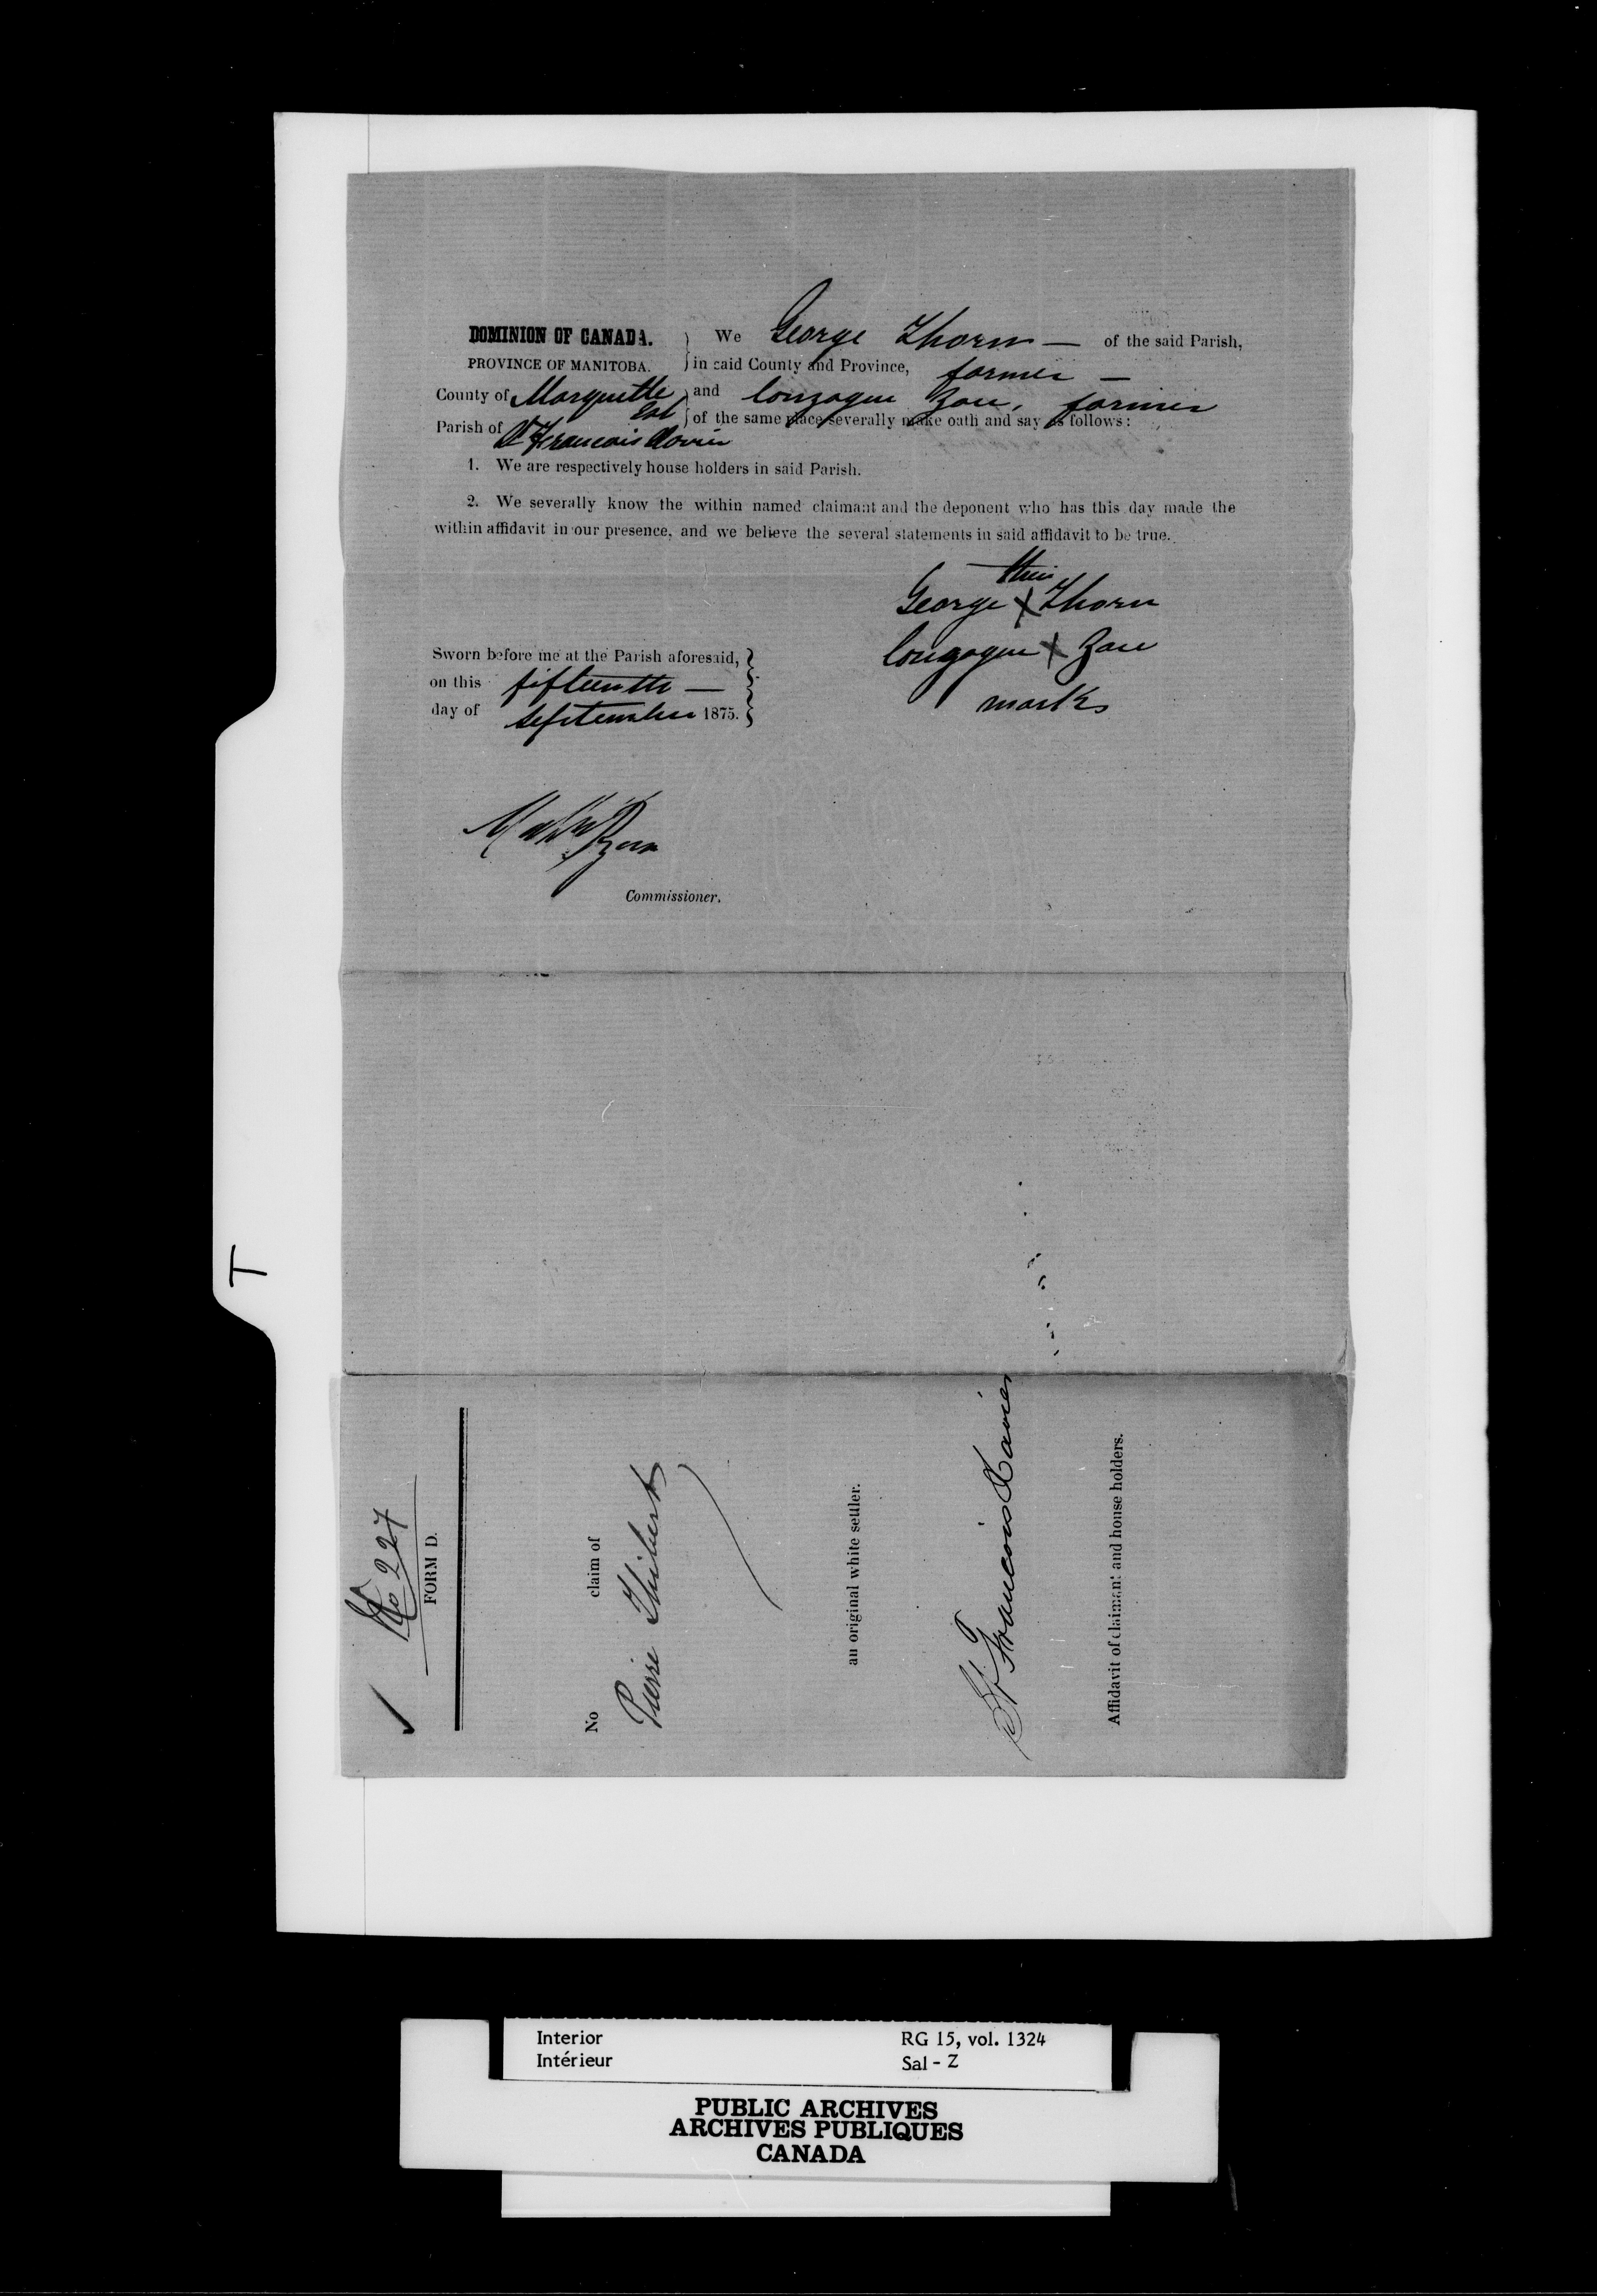 DOMINION OF CANADA.
PROVINCE OF MANITOBA.
County of Marquette
Est
Parish of St Francois Xavier
We George Thorn — of the said Parish,
in said County and Province, farmer —
and Gonzague Zace, farmer
of the same place severally make oath and say as follows:
1. We are respectively house holders in said Parish.
2. We severally know the within named claimant and the deponent who has this day made the
within affidavit in our presence, and we believe the several statements in said affidavit to be true.
their
George X Thorn
Gonzague X Zace
marks
Sworn before me at the Parish aforesaid,
on this fifteenth —
day of September 1875.
Commissioner.
T
No 227
FORM D.
No claim of
Pierre Thibert
an original white settler.
St Francois Xavier
Affidavit of claimant and house holders.
Interior
Intérieur
RG 15, vol. 1324
Sal - Z
PUBLIC ARCHIVES
ARCHIVES PUBLIQUES
CANADA